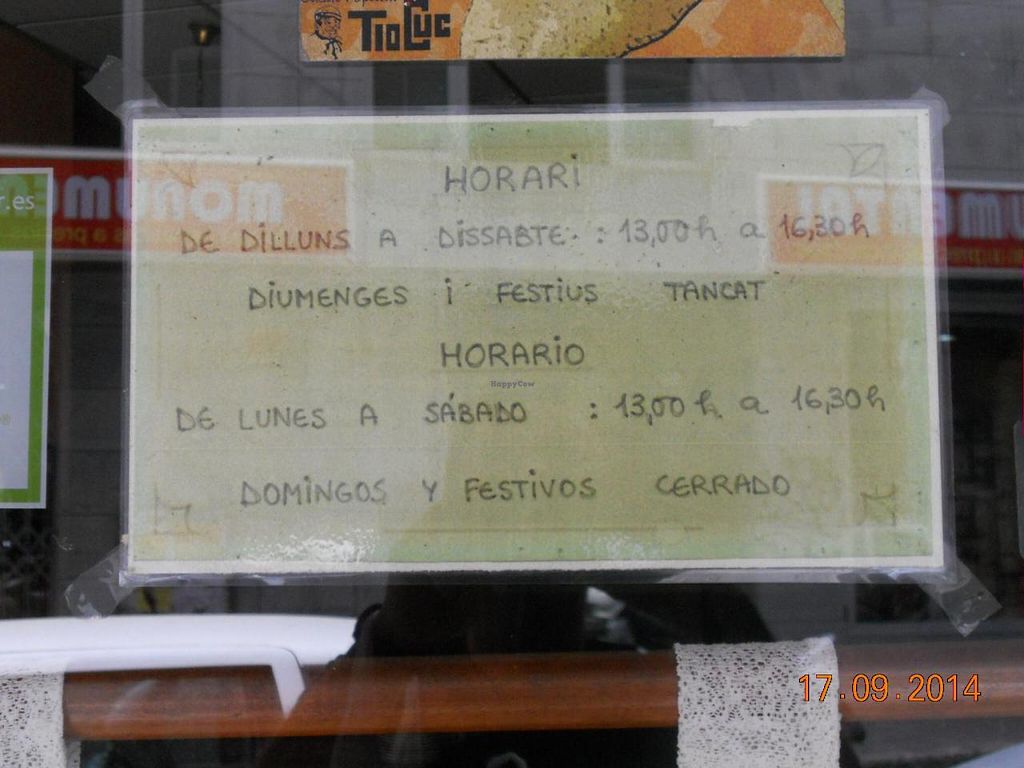 TIOLUC
HORARI
DE DILLUNS A DISSABTE : 13,00 h a 16,30 h
DIUMENGES i FESTIUS TANCAT
HORARIO
HappyCow
DE LUNES A SÁBADO : 13,00 h a 16,30 h
DOMINGOS Y FESTIVOS CERRADO
r.es
17.09.2014